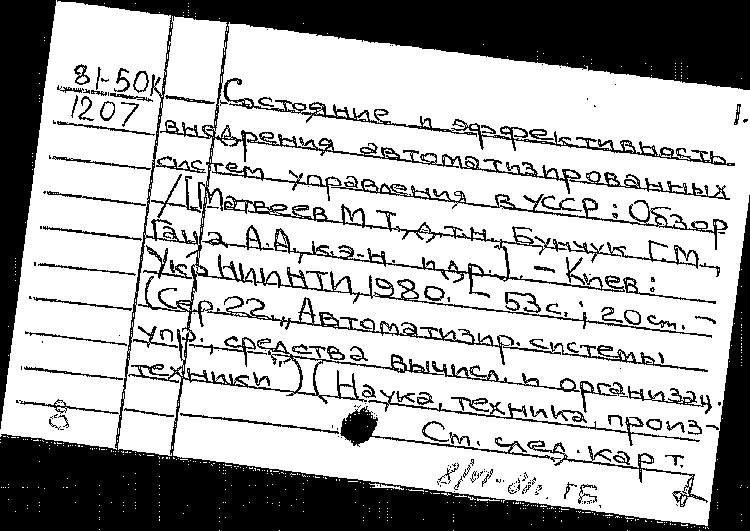 81-50К
1207
1.
Состояние и эффективность
внедрения автоматизированных
систем управления в УССР: Обзор
/[Матвеев М.Т., д.т.н., Бунчук Г.М.,
Гаца А.А., к.э.н. и др.]. – Киев:
УкрНИИНТИ, 1980. – 53с.; 20см. –
(Сер. 22. „Автоматизир. системы
упр., средства вычисл. и организац.
техники") (Наука, техника, произ-
См. след. карт.
8/VI-81г. ГБ.